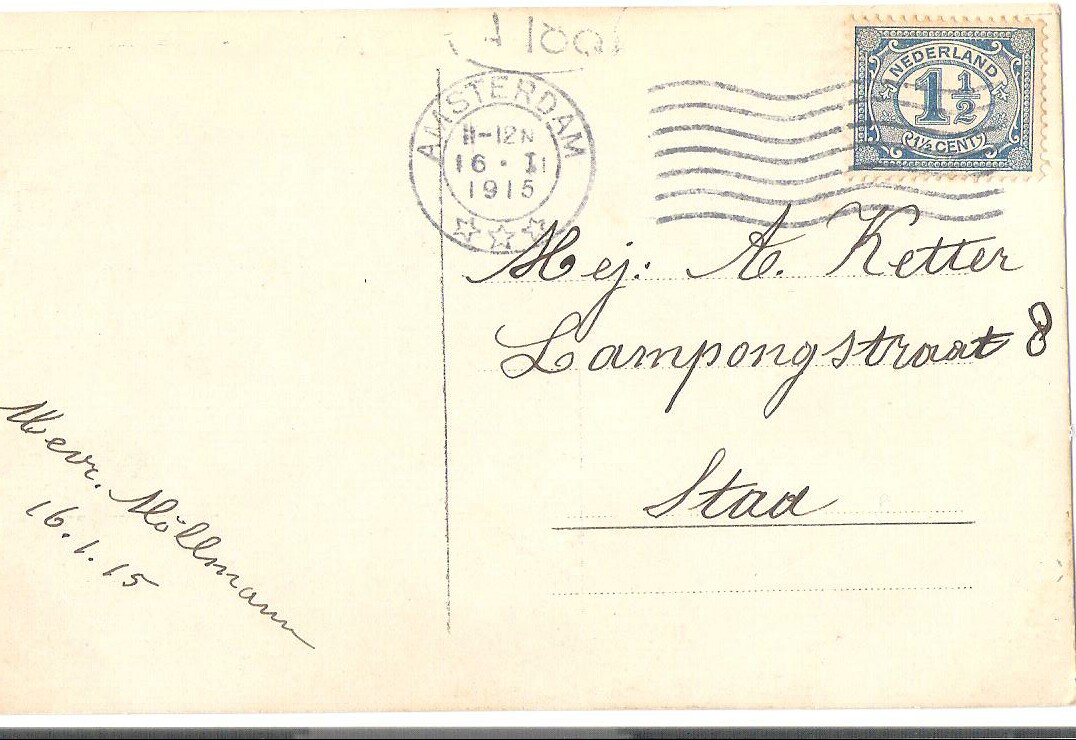 AMSTERDAM
11-12N
16 · I
1915
NEDERLAND
1 1/2
1 1/2 CENT
Mej: A. Ketter
Lampongstraat 8
Stad
Mevr. Möllmann
16.1.15